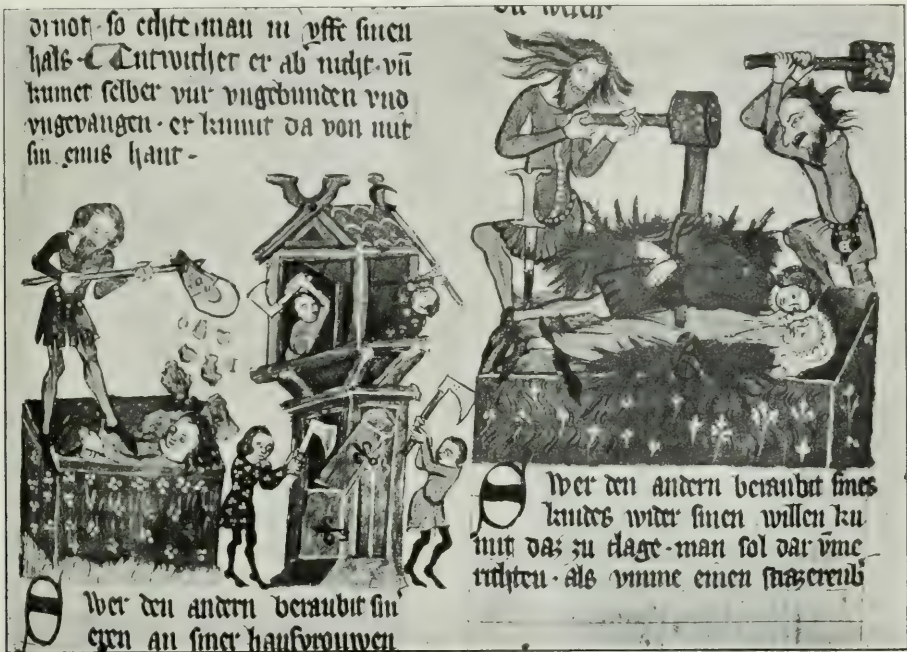 dirnot · so echte man in vffe sinen
hals · Entwichet er ab nicht · vn̄
kumet selber vur vngebunden vnd
vngevangen · er kumit da von mit
sin eines hant ·
Swer den andern beraubit sin
eren an siner hausvrouwen
Swer den andern beraubit sines
kindes wider sinen willen ku
mit daz zu clage · man sol dar vm̄e
richten · als vmme einen strazereub